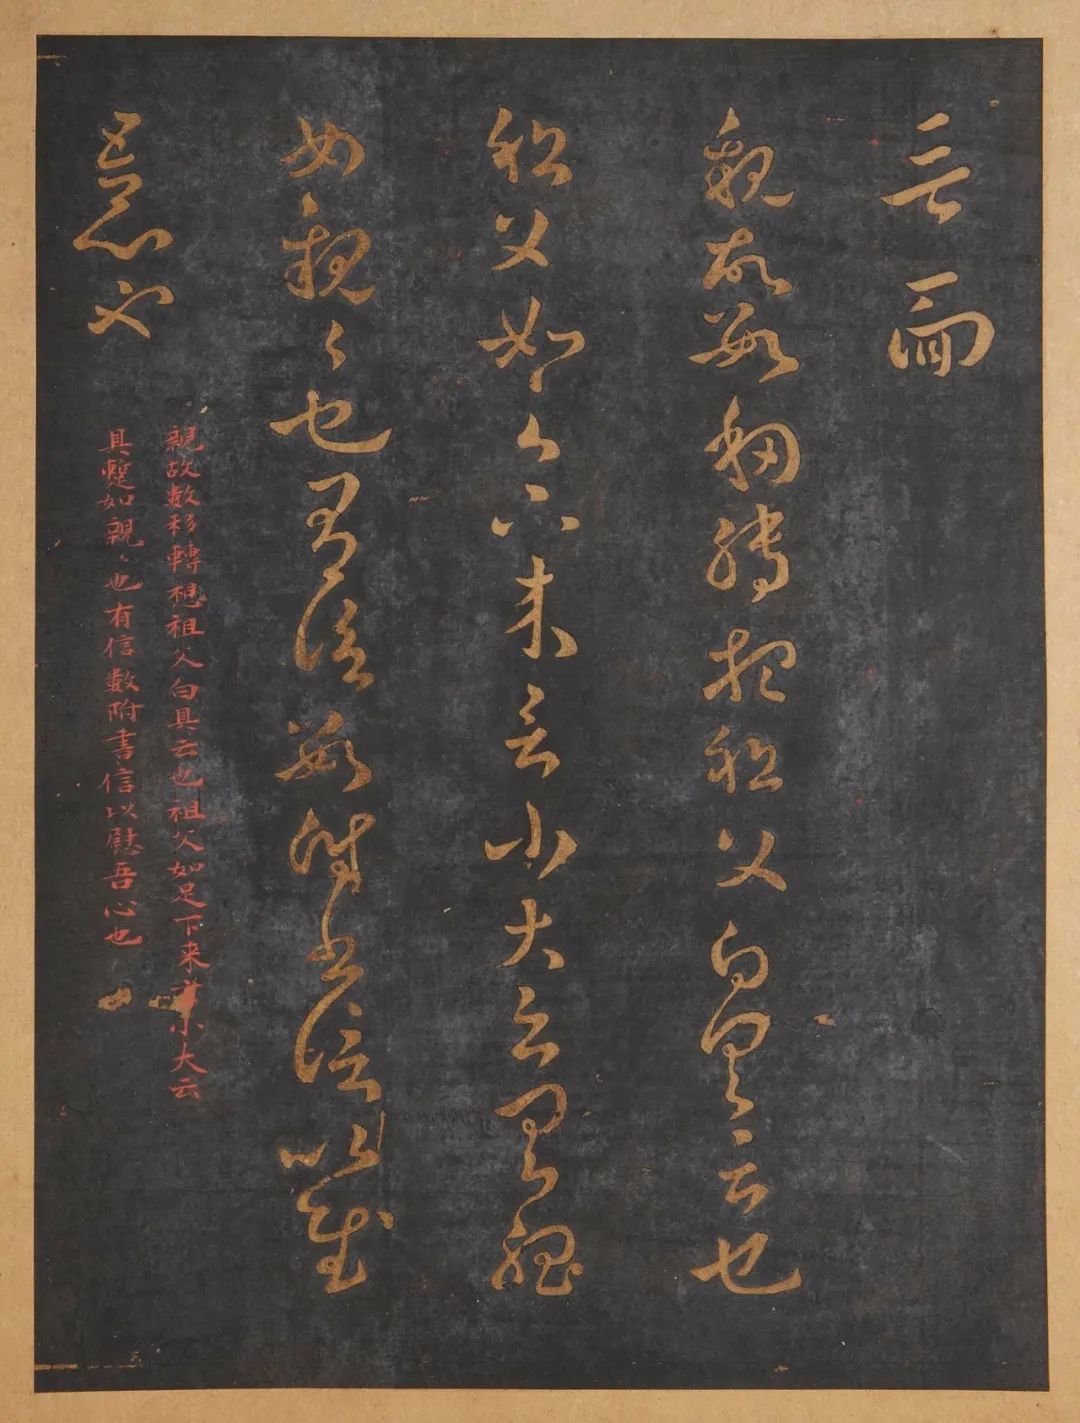 言面
親故數移轉想祖父白具云也
祖父如足下来言小大云具
如親〻也有信數附書信以慰
吾心也
親故数移轉想祖父白具云也祖父如足下来小大云
具如親〻也有信數附書信以慰吾心也